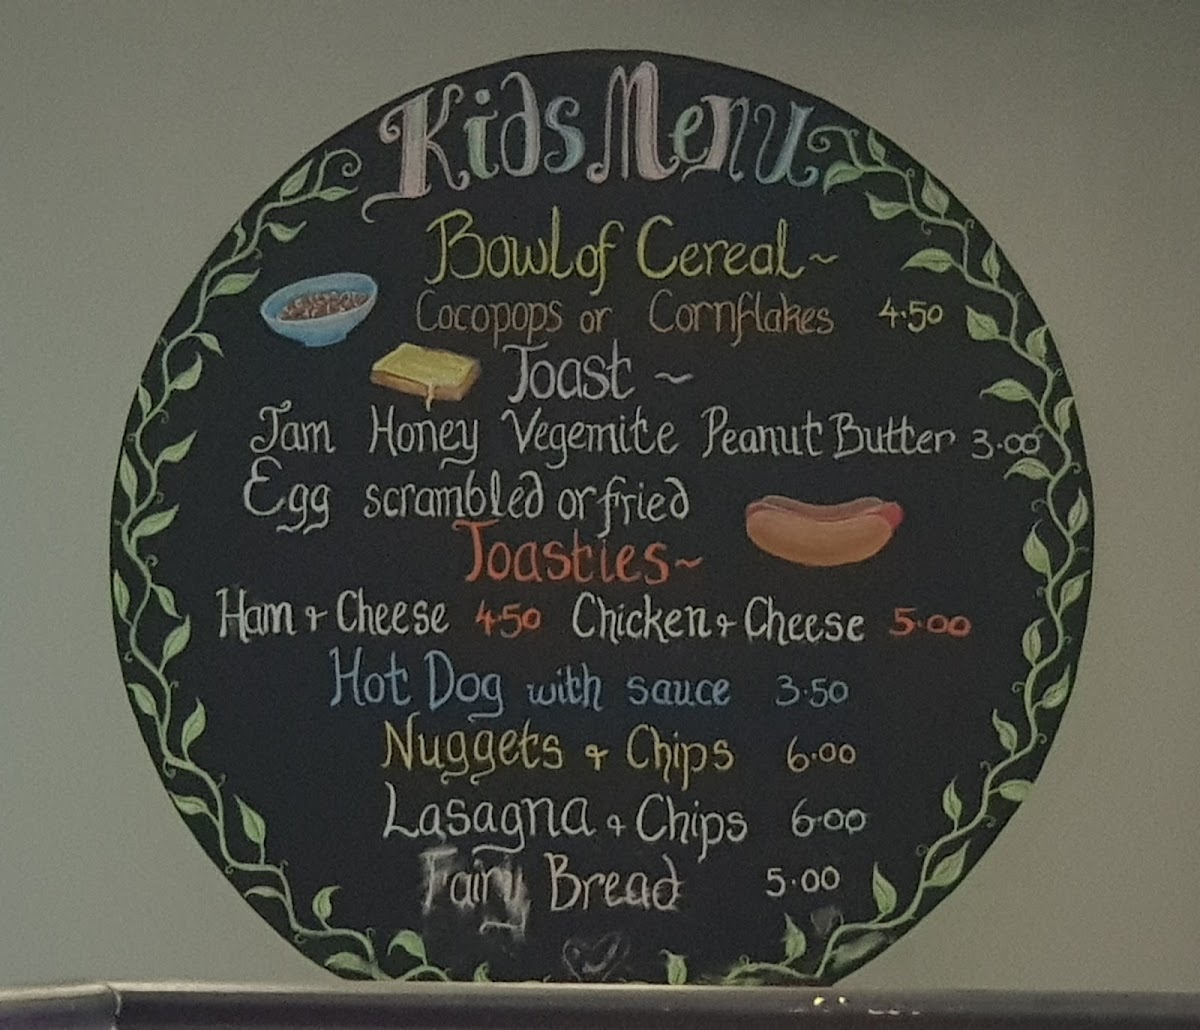 Kids Menu
Bowl of Cereal ~
Cocopops or Cornflakes 4.50
Toast ~
Jam Honey Vegemite Peanut Butter 3.00
Egg scrambled or fried
Toasties ~
Ham + Cheese 4.50 Chicken + Cheese 5.00
Hot Dog with sauce 3.50
Nuggets + Chips 6.00
Lasagna + Chips 6.00
Fairy Bread 5.00